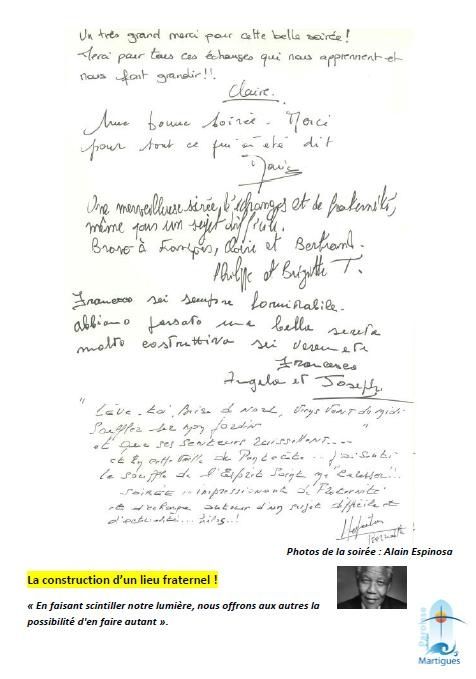 Un très grand merci pour cette belle soirée !
Merci pour tous ces échanges qui nous apprennent et
nous font grandir !!
Claire.
Une bonne soirée - Merci
pour tout ce qui a été dit
Une merveilleuse soirée, d'échanges et de fraternité,
même pour un sujet difficile.
Bravo à François, Claire et Bertrand.
Philippe et Brigitte T.
Francesco sei sempre formidabile.
abbiamo passato una bella serata
molto costruttiva sei veramente
Francesco
Angela et Joseph
" Lève-toi, Brise du Nord, Viens Vent du midi
Soufflez sur mon Jardin
et que ses senteurs ruissellent...
et en cette Veille de Pentecôte... j'ai senti
le souffle de l'Esprit Saint me caresser !..
soirée impressionnante de Fraternité
et d'échange autour d'un sujet difficile et
d'actualité...
Photos de la soirée : Alain Espinosa
La construction d'un lieu fraternel !
« En faisant scintiller notre lumière, nous offrons aux autres la
possibilité d'en faire autant ».
Paroisse
Martigues